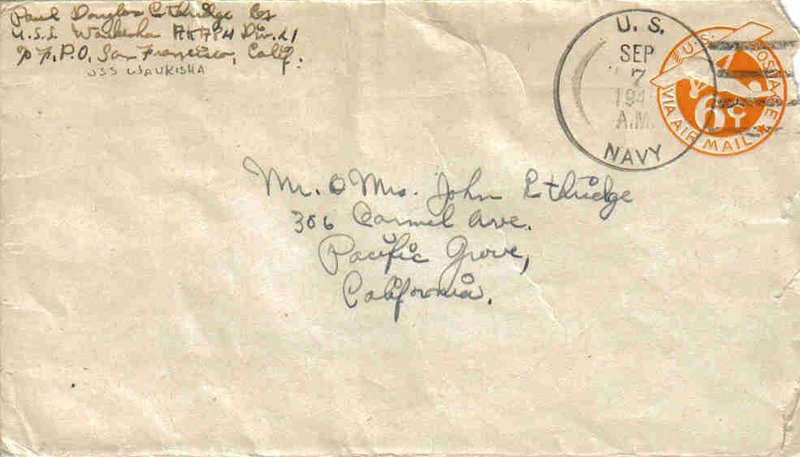 Paul Douglas Ethridge
U.S.S. Waukesha Div. 21
% F.P.O. San Francisco, Calif.
USS WAUKISHA
U. S.
SEP
7
194
A.M.
NAVY
U.S. POSTAGE
6¢
VIA AIR MAIL
Mr. & Mrs. John Ethridge
306 Carmel Ave.
Pacific Grove,
California.